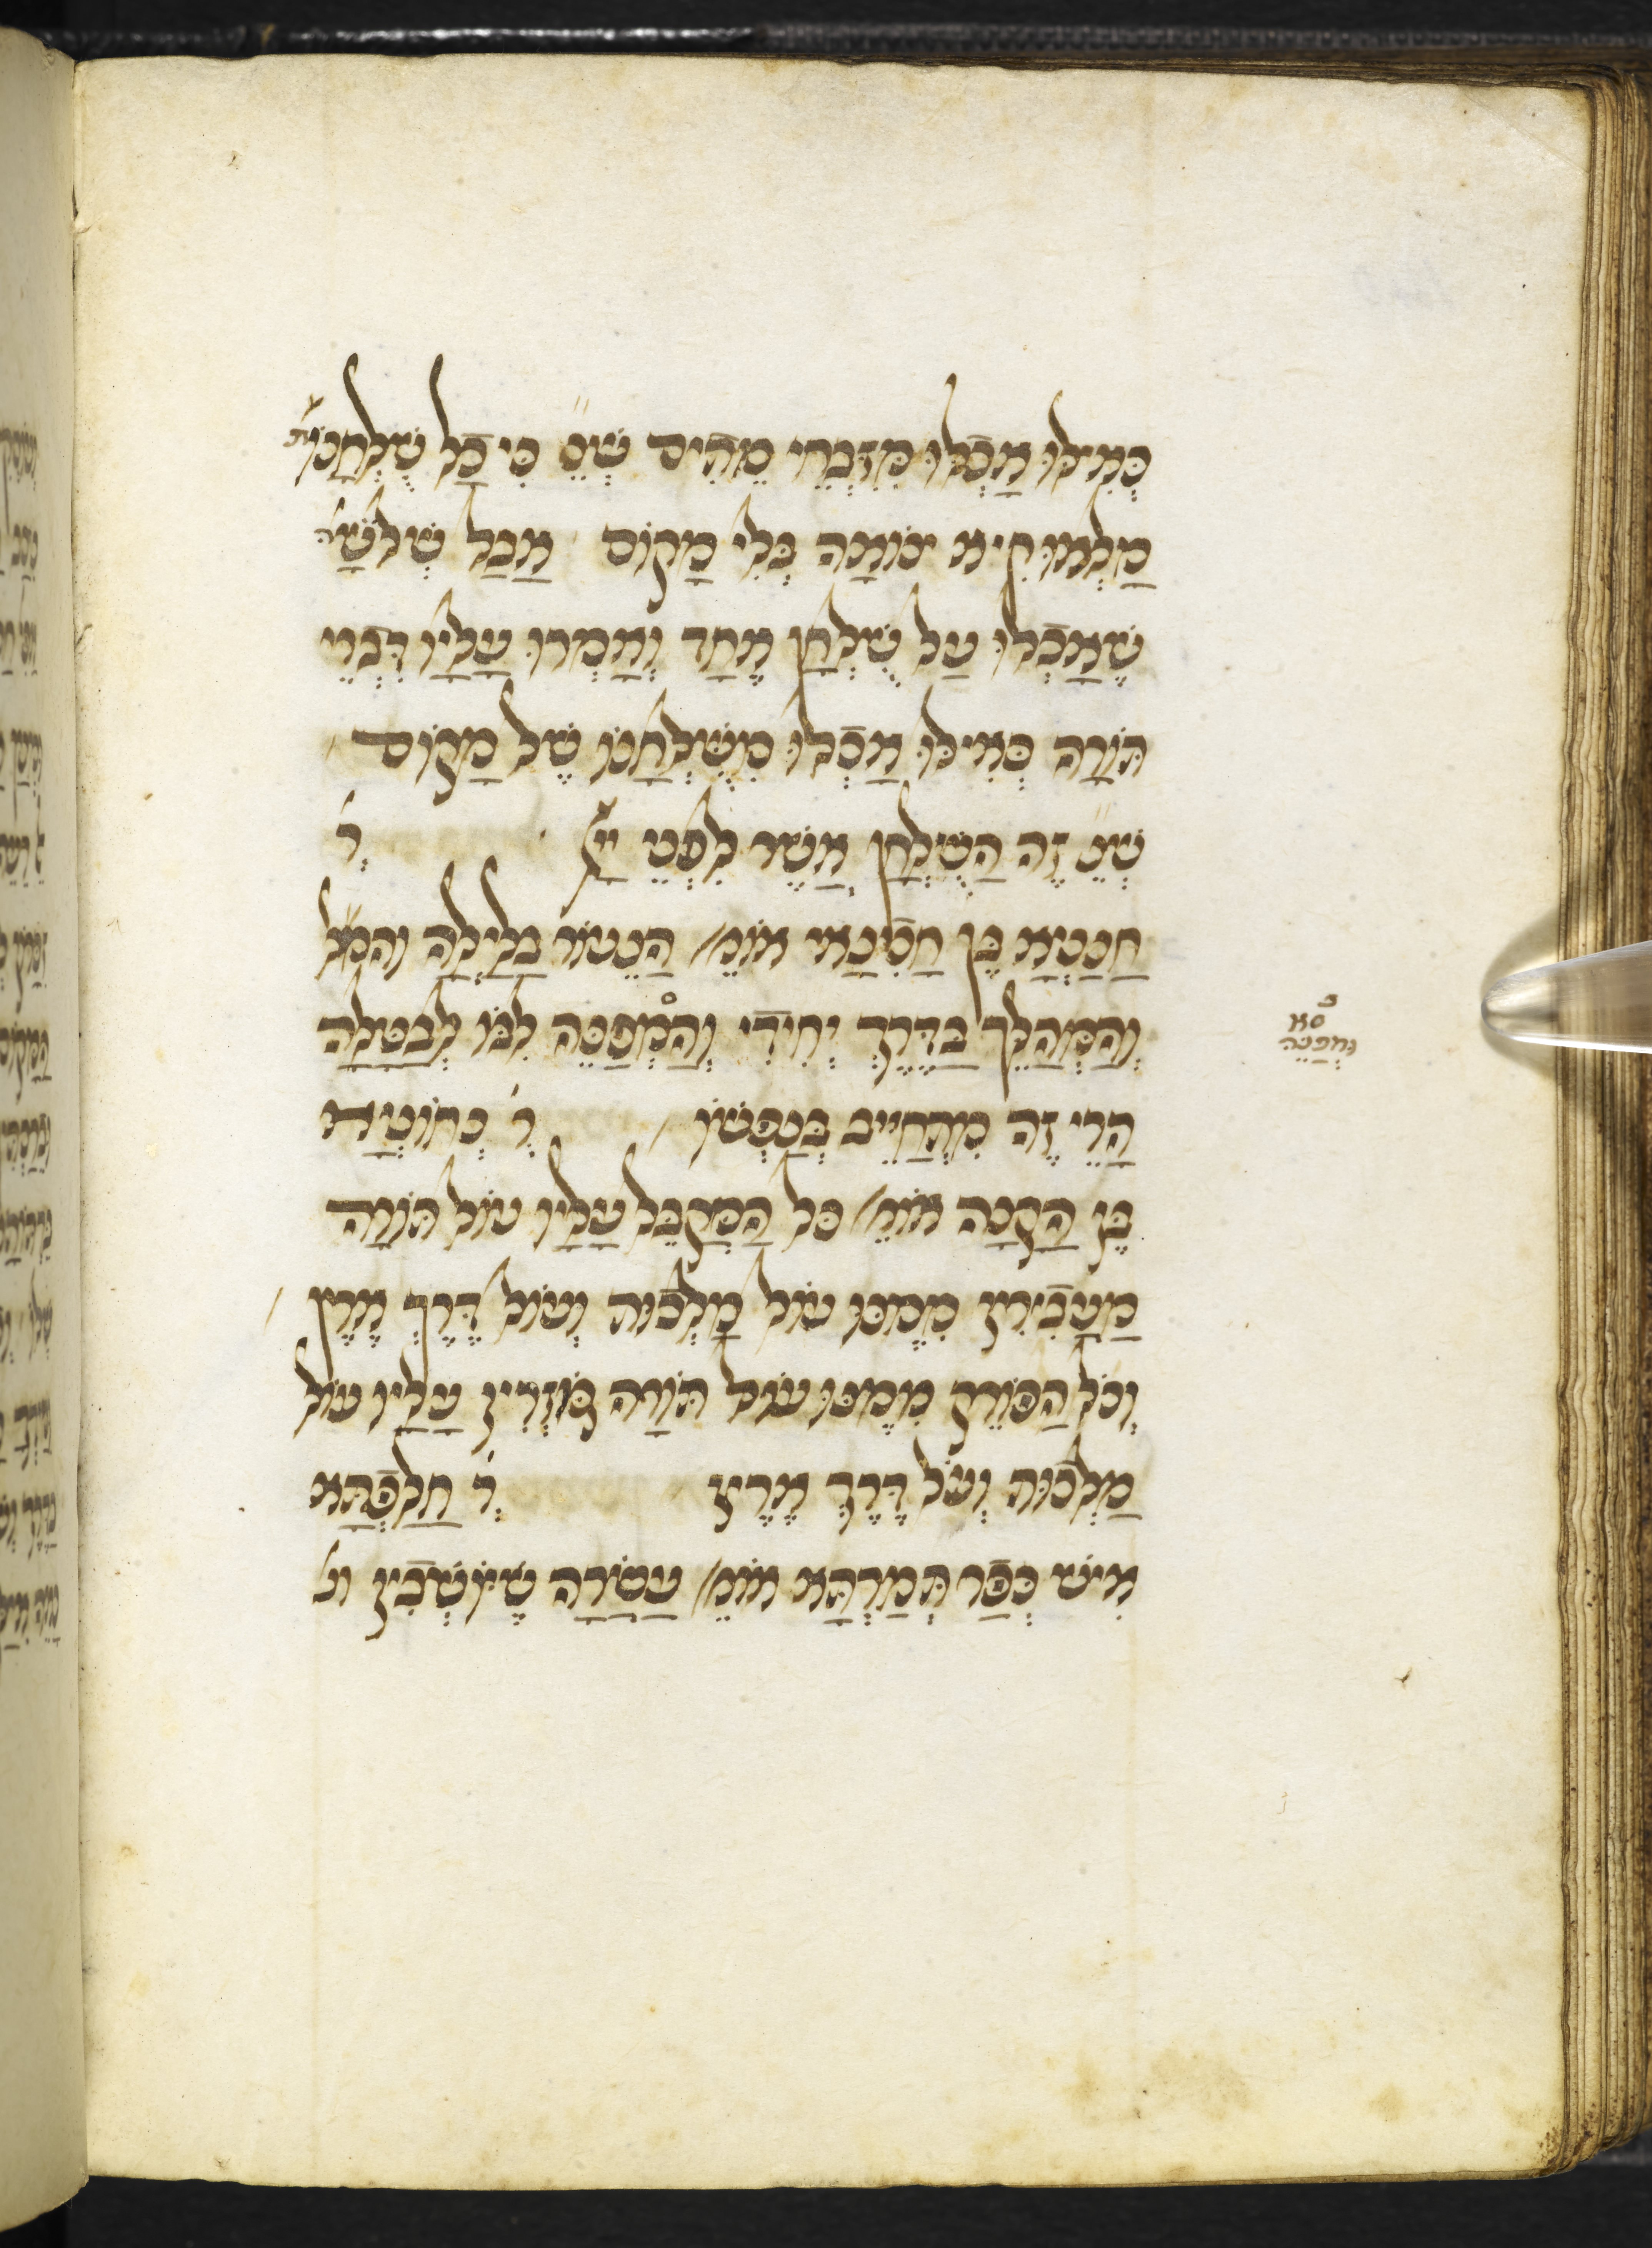 כְּאִילּוּ אָכְלוּ מִזִּבְחֵי מֵתִים שְׁנֵ״ כִּי כָּל שֻׁלְחָנוֹת
מָלְאוּ קִיא צוֹאָה בְּלִי מָקוֹם אֲבָל שְׁלֹשָׁה
שֶׁאָכְלוּ עַל שֻׁלְחָן אֶחָד וְאָמְרוּ עָלָיו דִּבְרֵי
תּוֹרָה כְּאִילּוּ אָכְלוּ מִשֻּׁלְחָנוֹ שֶׁל מָקוֹם
שְׁנֵ״ זֶה הַשֻּׁלְחָן אֲשֶׁר לִפְנֵי יְיָ ר׳
חֲנַנְיָא בֶּן חֲכִינַאי אוֹמֵ׳ הַנֵּעוֹר בַּלַּיְלָה
וְהַמְּהַלֵּךְ בַּדֶּרֶךְ יְחִידִי וְהַמְפַנֶּה לִבּוֹ לְבַטָּלָה
הֲרֵי זֶה מִתְחַיֵּיב בְּנַפְשׁוֹ ר׳ נְחוֹנְיָה
בֶּן הַקָּנָה אוֹמֵ׳ כָּל הַמְקַבֵּל עָלָיו עוֹל תּוֹרָה
מַעֲבִירִין מִמֶּנּוּ עוֹל מַלְכוּת וְעוֹל דֶּרֶךְ אֶרֶץ
וְכֹל הַפּוֹרֵק מִמֶּנּוּ עוֹל תּוֹרָה גּוֹזְרִין עָלָיו עוֹל
מַלְכוּת וְעוֹל דֶּרֶךְ אֶרֶץ ר׳ חֲלַפְתָּא
אִישׁ כְּפַר חֲנַנְיָא אוֹמֵ׳ עֲשָׂרָה שֶׁיּוֹשְׁבִין
ס״א
וּמְפַנֶּה